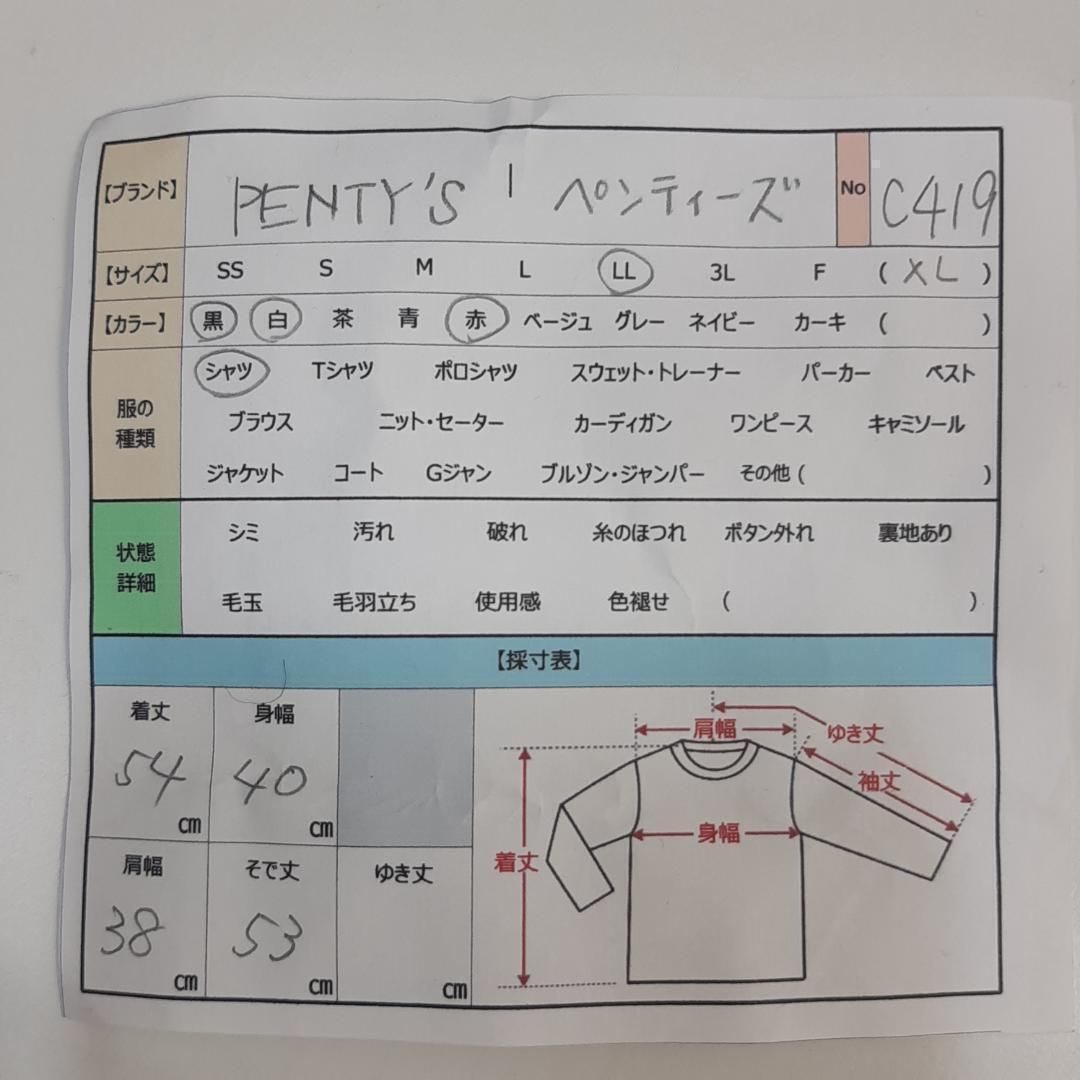 【ブランド】 PENTY'S ペンティーズ No C419
【サイズ】 SS S M L LL 3L F ( XL )
【カラー】 黒 白 茶 青 赤 ベージュ グレー ネイビー カーキ ( )
服の種類
シャツ Tシャツ ポロシャツ スウェット・トレーナー パーカー ベスト
ブラウス ニット・セーター カーディガン ワンピース キャミソール
ジャケット コート Gジャン ブルゾン・ジャンパー その他 ( )
状態詳細
シミ 汚れ 破れ 糸のほつれ ボタン外れ 裏地あり
毛玉 毛羽立ち 使用感 色褪せ ( )
【採寸表】
着丈 身幅
54 cm 40 cm
肩幅 そで丈 ゆき丈
38 cm 53 cm cm
肩幅 ゆき丈
袖丈
身幅
着丈